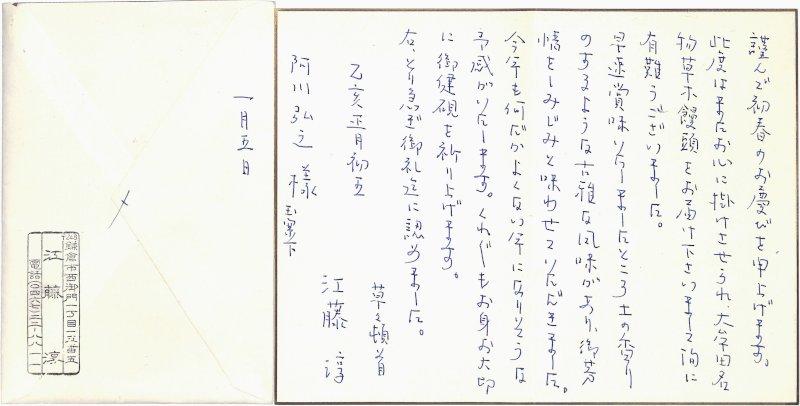 謹んで初春のお慶びを申上げます。
此度はまたお心に掛けさせられ、大牟田名
物草木饅頭をお届け下さいまして洵に
有難うございました。
早速賞味いたしましたところ土の香り
のするような古雅な風味があり、御芳
情をしみじみと味わせていただきました。
今年も何だかよくない年になりそうな
予感がいたします。くれぐれもお身お大切
に御健硯を祈り上げます。
右、とり急ぎ御礼迄に認めました。
草々頓首
乙亥正月初五
江藤 淳
阿川弘之様 玉案下
一月五日
〆
鎌倉市西御門一丁目一五番五
江藤淳
電話